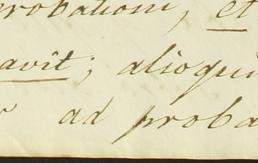 probationi, et
avit; alioqui
ad proba